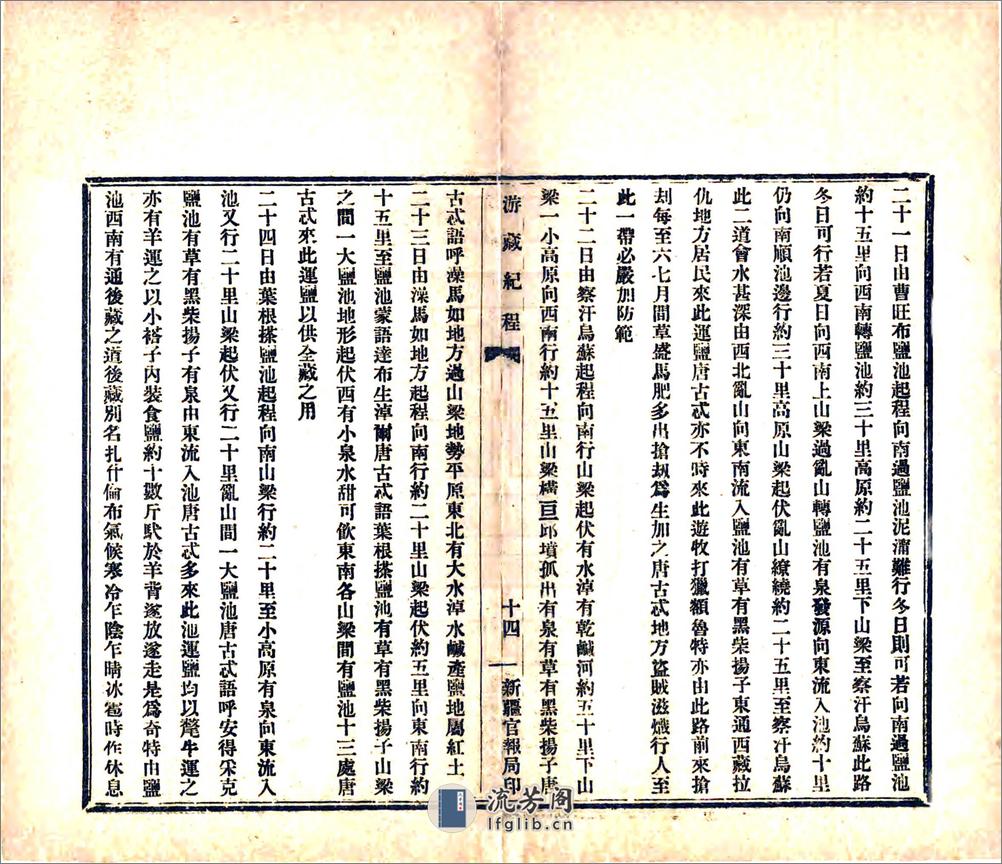 二十一日由曹旺布鹽池起程向南過鹽池泥濘難行冬日則可若向南過鹽池
約十五里向西南轉鹽池約三十里高原約二十五里下山梁至察汗烏蘇此路
冬日可行若夏日向西南上山梁過亂山轉鹽池有泉發源向東流入池約十里
仍向南順池邊行約三十里高原山梁起伏亂山繚繞約二十五里至察汗烏蘇
此二道會水甚深由西北亂山向東南流入鹽池有草有黑柴揚子東通西藏拉
仇地方居民來此運鹽唐古忒亦不時來此遊牧打獵額魯特亦由此路前來搶
刦每至六七月間草盛馬肥多出搶刼爲生加之唐古忒地方盜賊滋熾行人至
此一帶必嚴加防範
二十二日由察汗烏蘇起程向南行山梁起伏有水淖有乾鹹河約五十里下山
梁一小高原向西南行約十五里山梁橫亘邱墳孤出有泉有草有黑柴揚子唐
游藏紀程
十四
新疆官報局印
古忒語呼澡馬如地方過山梁地勢平原東北有大水淖水鹹產鹽地屬紅土
二十三日由澡馬如地方起程向南行約二十里山梁起伏約五里向東南行約
十五里至鹽池蒙語達布生淖爾唐古忒語葉根搽鹽池有草有黑柴揚子山梁
之間一大鹽池地形起伏西有小泉水甜可飲東南各山梁間有鹽池十三處唐
古忒來此運鹽以供全藏之用
二十四日由葉根搽鹽池起程向南山梁行約二十里至小高原有泉向東流入
池又行二十里山梁起伏又行二十里亂山間一大鹽池唐古忒語呼安得采克
鹽池有草有黑柴揚子有泉由東流入池唐古忒多來此池運鹽均以氂牛運之
亦有羊運之以小褡子內裝食鹽約十數斤馱於羊背遂放遂走是爲奇特由鹽
池西南有通後藏之道後藏別名扎什倫布氣候寒冷乍陰乍晴冰雹時作休息
流芳阁
lfglib.cn